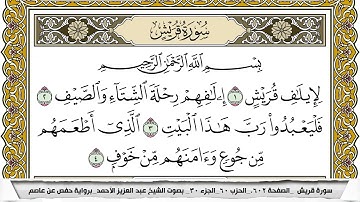 سُورَةُ قُرَيْشٍ
بِسْمِ ٱللَّهِ ٱلرَّحْمَٰنِ ٱلرَّحِيمِ
لِإِيلَٰفِ قُرَيْشٍ ١ إِۦلَٰفِهِمْ رِحْلَةَ ٱلشِّتَآءِ وَٱلصَّيْفِ ٢
فَلْيَعْبُدُوا۟ رَبَّ هَٰذَا ٱلْبَيْتِ ٣ ٱلَّذِىٓ أَطْعَمَهُم
مِّن جُوعٍ وَءَامَنَهُم مِّنْ خَوْفٍۭ ٤
سورة قريش _الصفحة ٦٠٢_ الحزب ٦٠_الجزء ٣٠_ بصوت الشيخ عبد العزيز الأحمد_ برواية حفص عن عاصم